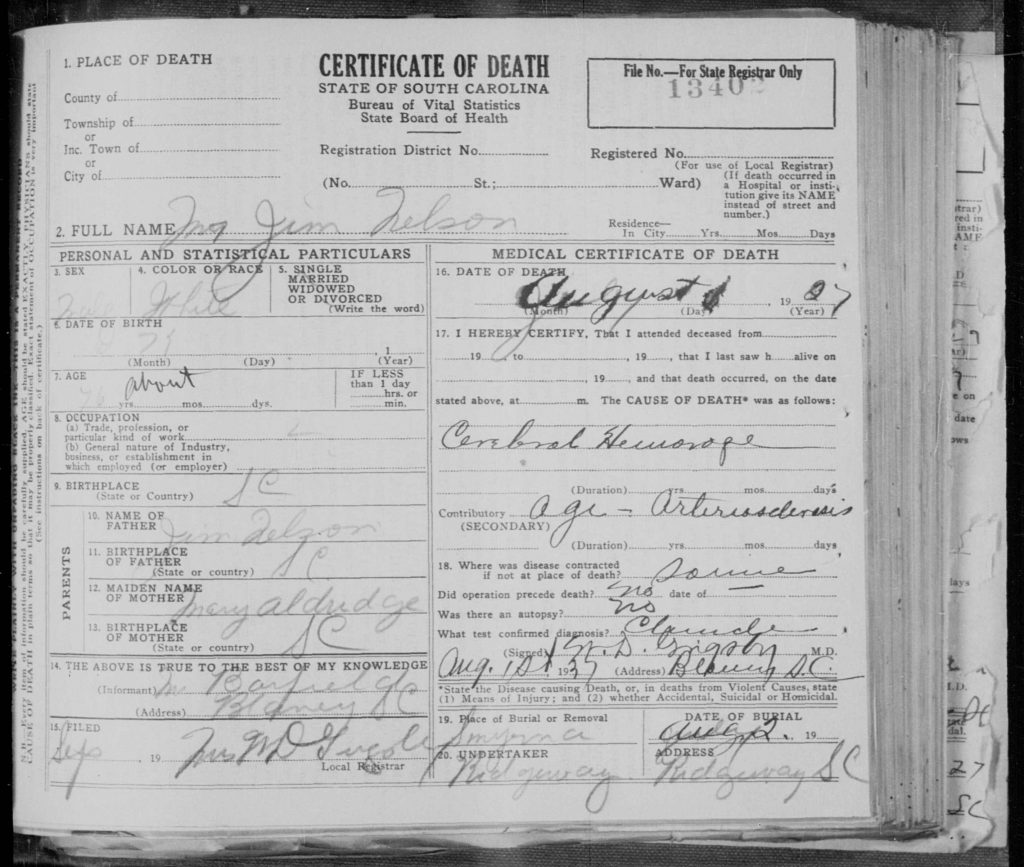 1. PLACE OF DEATH
County of
Township of
or
Inc. Town of
or
City of
CERTIFICATE OF DEATH
STATE OF SOUTH CAROLINA
Bureau of Vital Statistics
State Board of Health
Registration District No.
(No. St.; Ward)
File No.—For State Registrar Only
13402
Registered No.
(For use of Local Registrar)
(If death occurred in
a Hospital or insti-
tution give its NAME
instead of street and
number.)
2. FULL NAME Jim Nelson
Residence—
In City Yrs. Mos. Days
PERSONAL AND STATISTICAL PARTICULARS
3. SEX
4. COLOR OR RACE
White
5. SINGLE
MARRIED
WIDOWED
OR DIVORCED
(Write the word)
6. DATE OF BIRTH
, 1
(Month) (Day) (Year)
7. AGE
about
yrs. mos. dys.
IF LESS
than 1 day
hrs. or
min.
8. OCCUPATION
(a) Trade, profession, or
particular kind of work
(b) General nature of Industry,
business, or establishment in
which employed (or employer)
9. BIRTHPLACE
(State or Country) S C
PARENTS
10. NAME OF
FATHER Jim Nelson
11. BIRTHPLACE
OF FATHER
(State or country) S C
12. MAIDEN NAME
OF MOTHER Mary Aldridge
13. BIRTHPLACE
OF MOTHER
(State or country) S C
14. THE ABOVE IS TRUE TO THE BEST OF MY KNOWLEDGE
(Informant)
(Address) Blaney S C
15. FILED
Sep 19 Mrs
Local Registrar
MEDICAL CERTIFICATE OF DEATH
16. DATE OF DEATH
August 1, 1927
(Month) (Day) (Year)
17. I HEREBY CERTIFY, That I attended deceased from
, 19 to , 19 , that I last saw h alive on
, 19 , and that death occurred, on the date
stated above, at m. The CAUSE OF DEATH* was as follows:
Cerebral Hemoroge
(Duration) yrs. mos. days
Contributory Age - Arteriosclerosis
(SECONDARY)
(Duration) yrs. mos. days
18. Where was disease contracted
if not at place of death?
Did operation precede death? No date of —
Was there an autopsy? No
What test confirmed diagnosis?
(Signed) W. D. Grigsby M.D.
Aug. 1927 (Address) Blaney S.C.
*State the Disease causing Death, or, in deaths from Violent Causes, state
(1) Means of Injury; and (2) whether Accidental, Suicidal or Homicidal.
19. Place of Burial or Removal
Smyrna
DATE OF BURIAL
Aug 2. 19
20. UNDERTAKER
Ridgeway
ADDRESS
Ridgeway S C